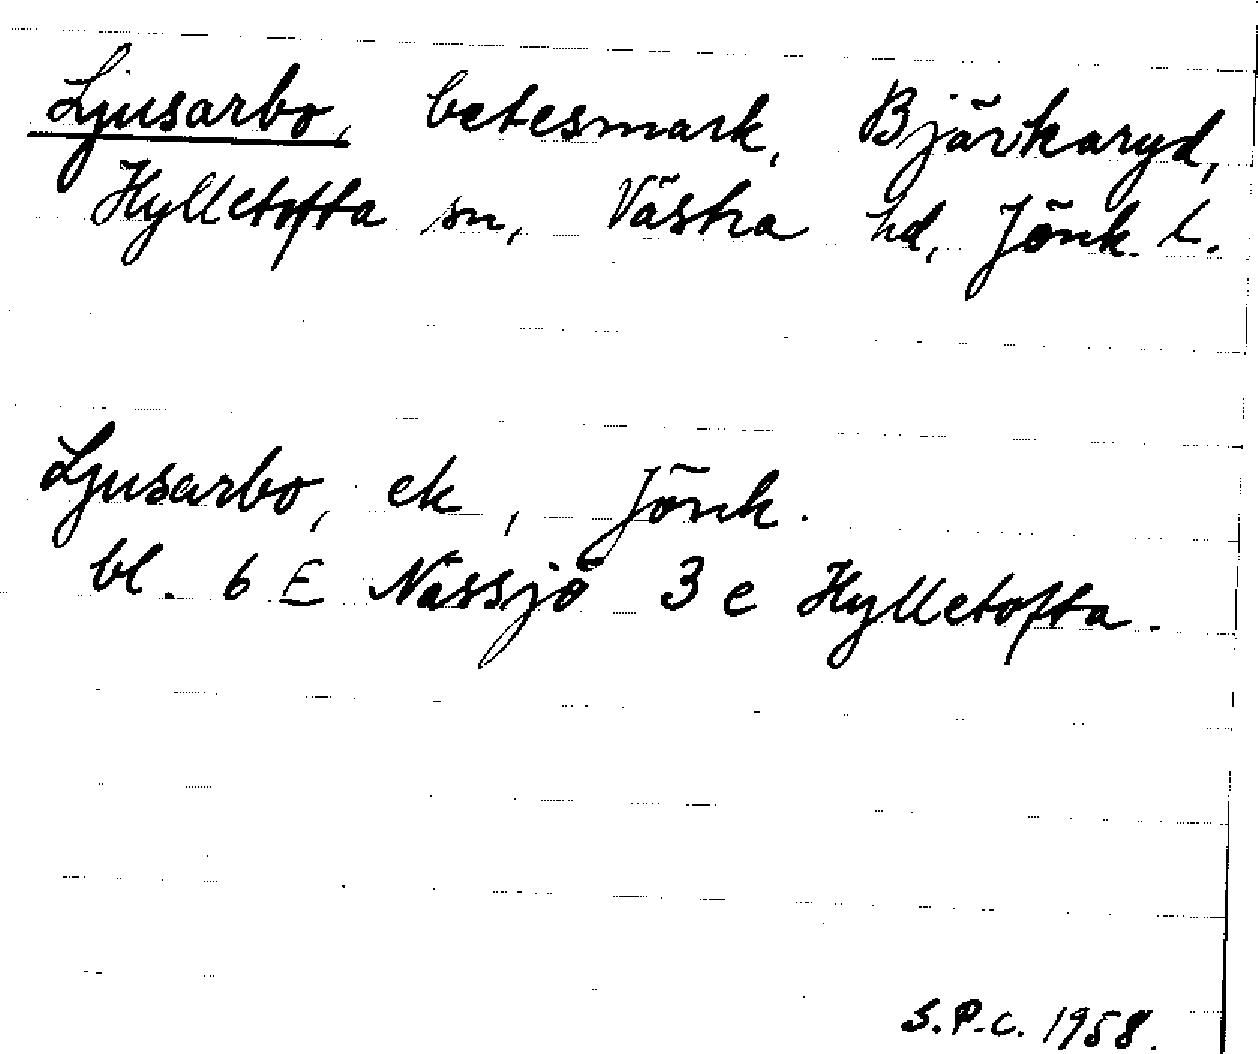 Ljusarbo, betesmark, Bjärkaryd,
Hylletofta sn, Västra hd, Jönk. l.
Ljusarbo, ek, Jönk.
bl. 6 E Nässjö 3 e Hylletofta.
S.P.C. 1958.